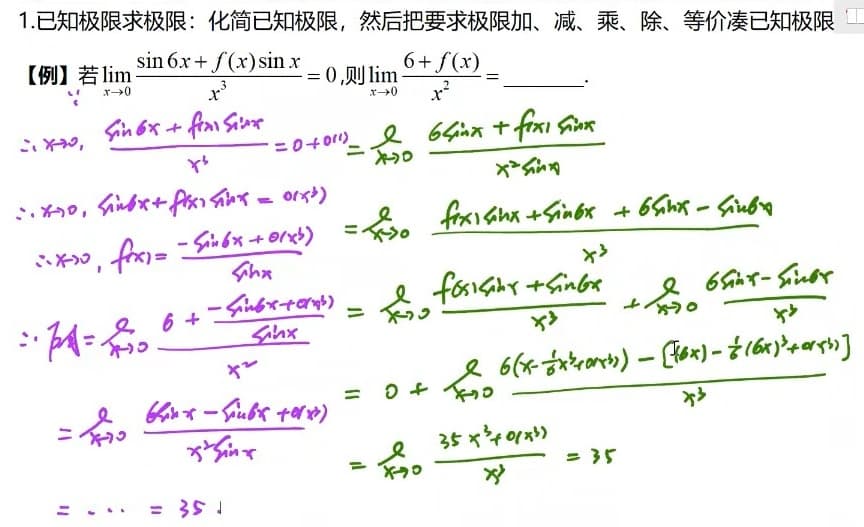 1.已知极限求极限：化简已知极限，然后把要求极限加、减、乘、除、等价凑已知极限
【例】若lim_{x→0} (sin 6x + f(x) sin x)/x³ = 0 ,则lim_{x→0} (6 + f(x))/x² = ________.
∵
∴ x→0, (sin6x + f(x) sinx)/x³ = 0 + o(1)
∴ x→0, sin6x + f(x) sinx = o(x³)
∴ x→0, f(x) = (-sin6x + o(x³))/sinx
∴ 原式 = lim_{x→0} (6 + (-sin6x + o(x³))/sinx)/x²
= lim_{x→0} (6sinx - sin6x + o(x³))/(x² sinx)
= ... = 35
= lim_{x→0} (6sinx + f(x) sinx)/(x² sinx)
= lim_{x→0} (f(x) sinx + sin6x + 6sinx - sin6x)/x³
= lim_{x→0} (f(x) sinx + sin6x)/x³ + lim_{x→0} (6sinx - sin6x)/x³
= 0 + lim_{x→0} (6(x - 1/6 x³ + o(x³)) - [(6x) - 1/6 (6x)³ + o(x³)])/x³
= lim_{x→0} (35x³ + o(x³))/x³ = 35